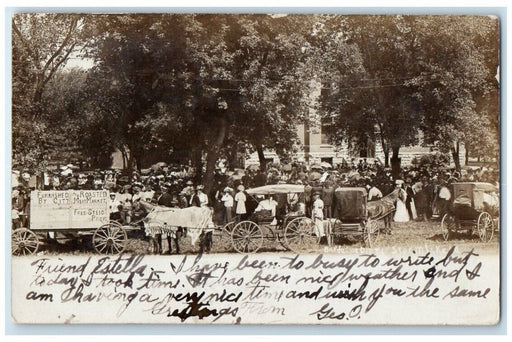 FURNISHED and ROASTED
BY CITY MEAT MARKET
FREE
Friend Estella, I have been to busy to write but
today I took time. It has been nice weather and I
am I having a very nice time and wish you the same
Greetings From Geo. O.